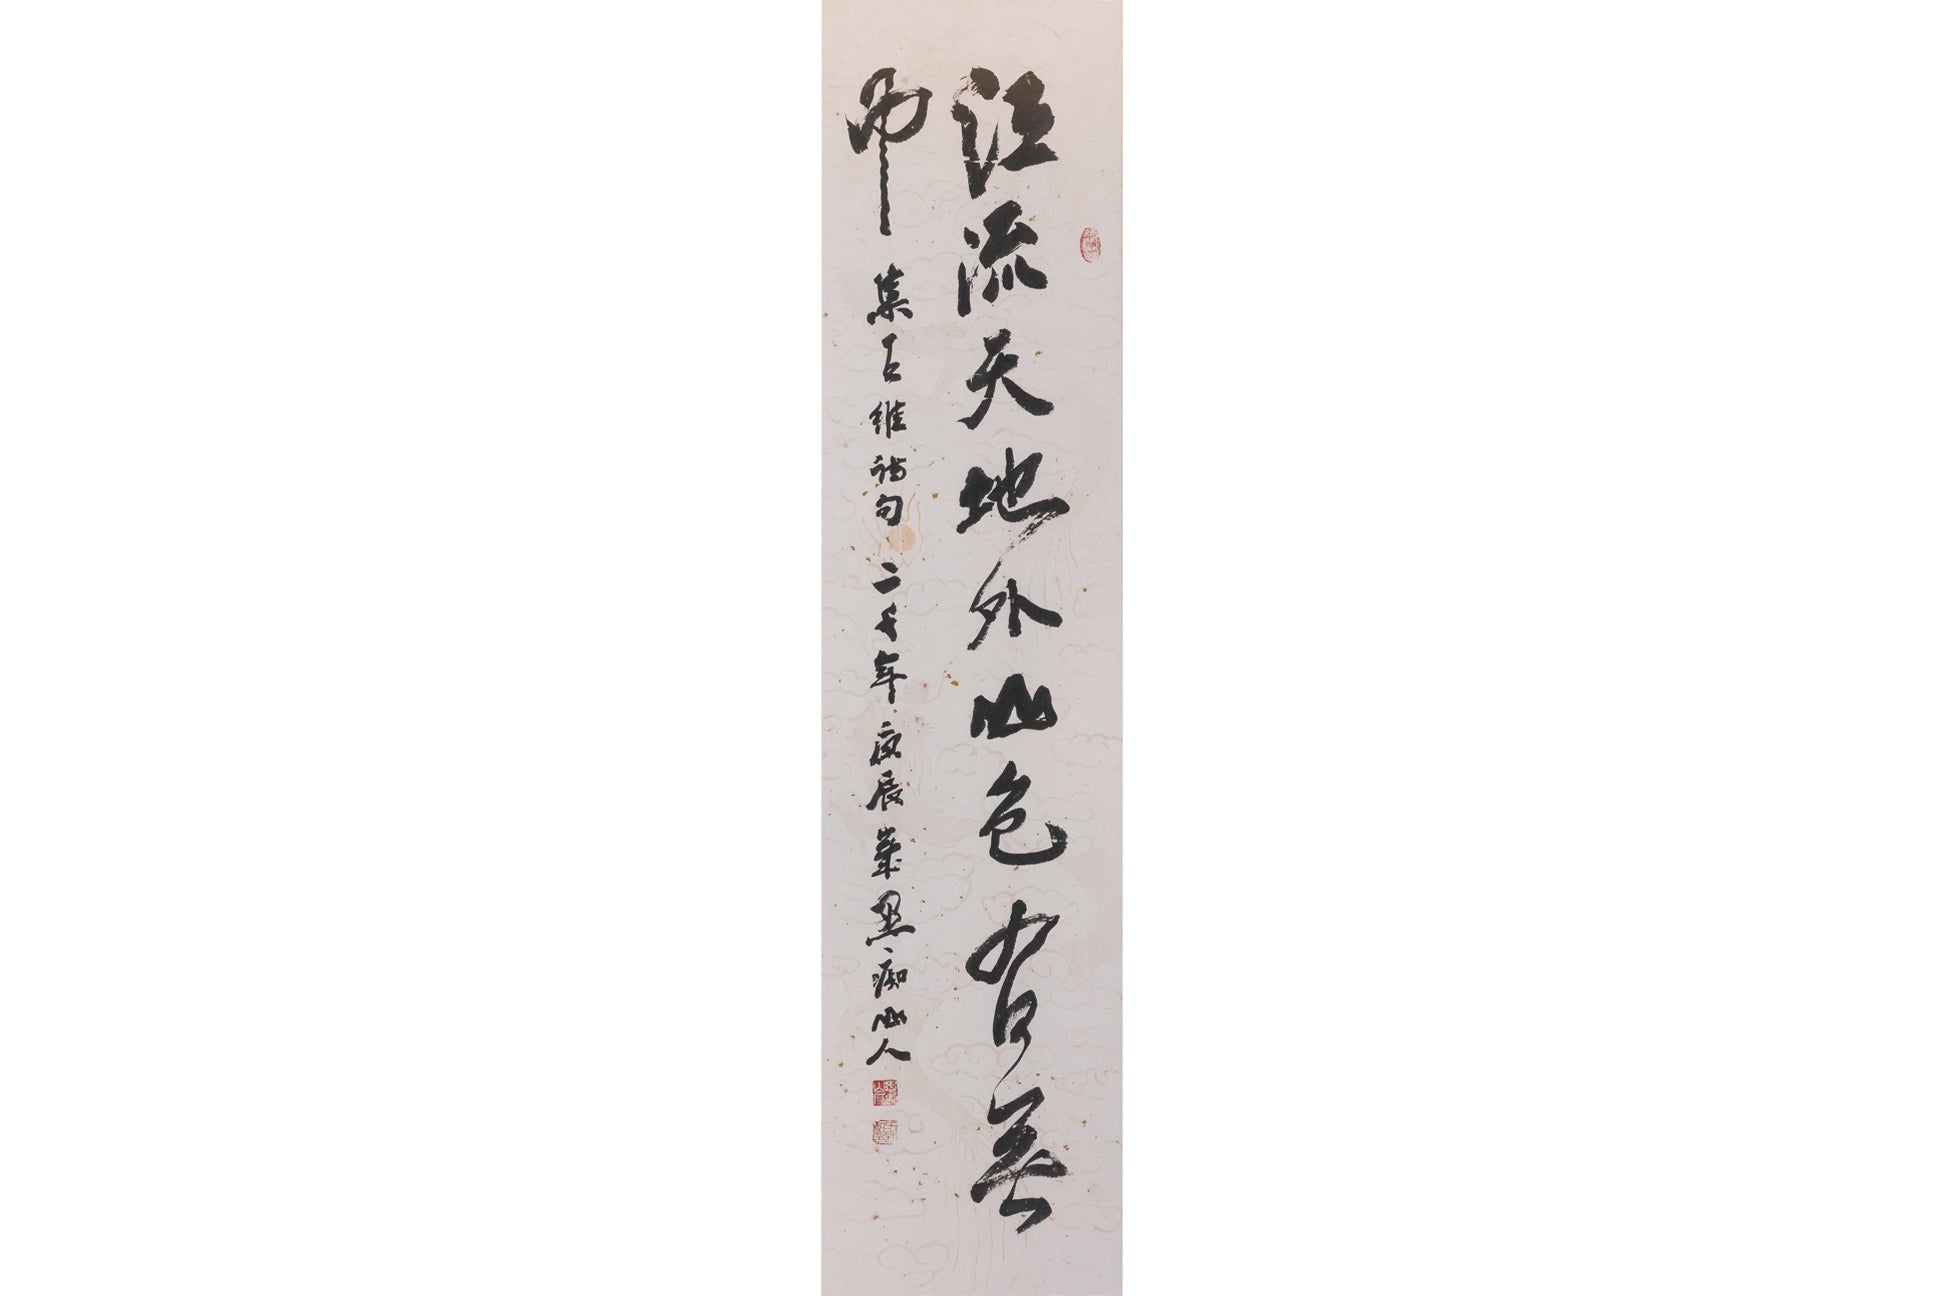 江流天地外山色有無
中 集王維詩句 二千年庚辰歲墨痴山人